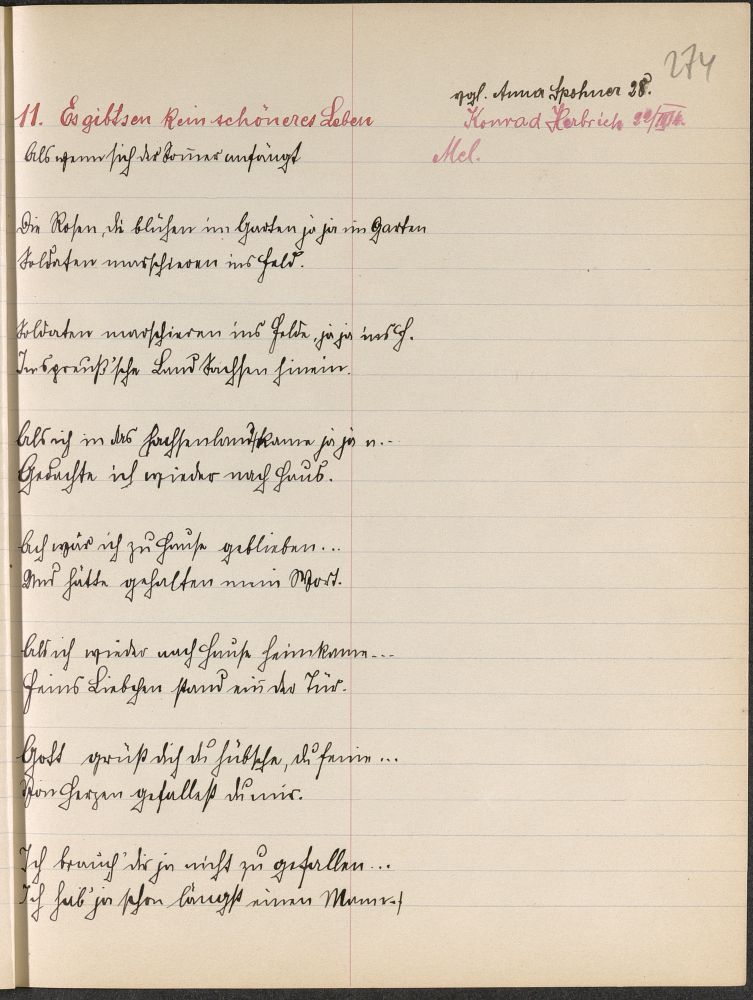 274
vgl. Anna Spohner 28.
11. Es gibtsen kein schöneres Leben
Konrad Herbrich 22/
Als wenn sich der Som̅er anfängt
Mel.
Die Rosen, die blühen im Garten ja ja im Garten
Soldaten marschieren ins Feld.
Soldaten marschieren ins Felde, ja ja ins F.
Ins preuß'sche Land Sachsen hinein.
Als ich in das Sachsenland kame ja ja n. -
Gedachte ich wieder nach Haus.
Ach wär ich zu Hause geblieben...
Und hätte gehalten mein Wort.
Als ich wieder nach Hause heimkame...
Feins Liebchen stand in der Tür.
Gott grüß dich du hübsche, du feine...
Von Herzen gefallest du mir.
Ich brauch' dir ja nicht zu gefallen...
Ich hab' ja schon längst einen Mann.